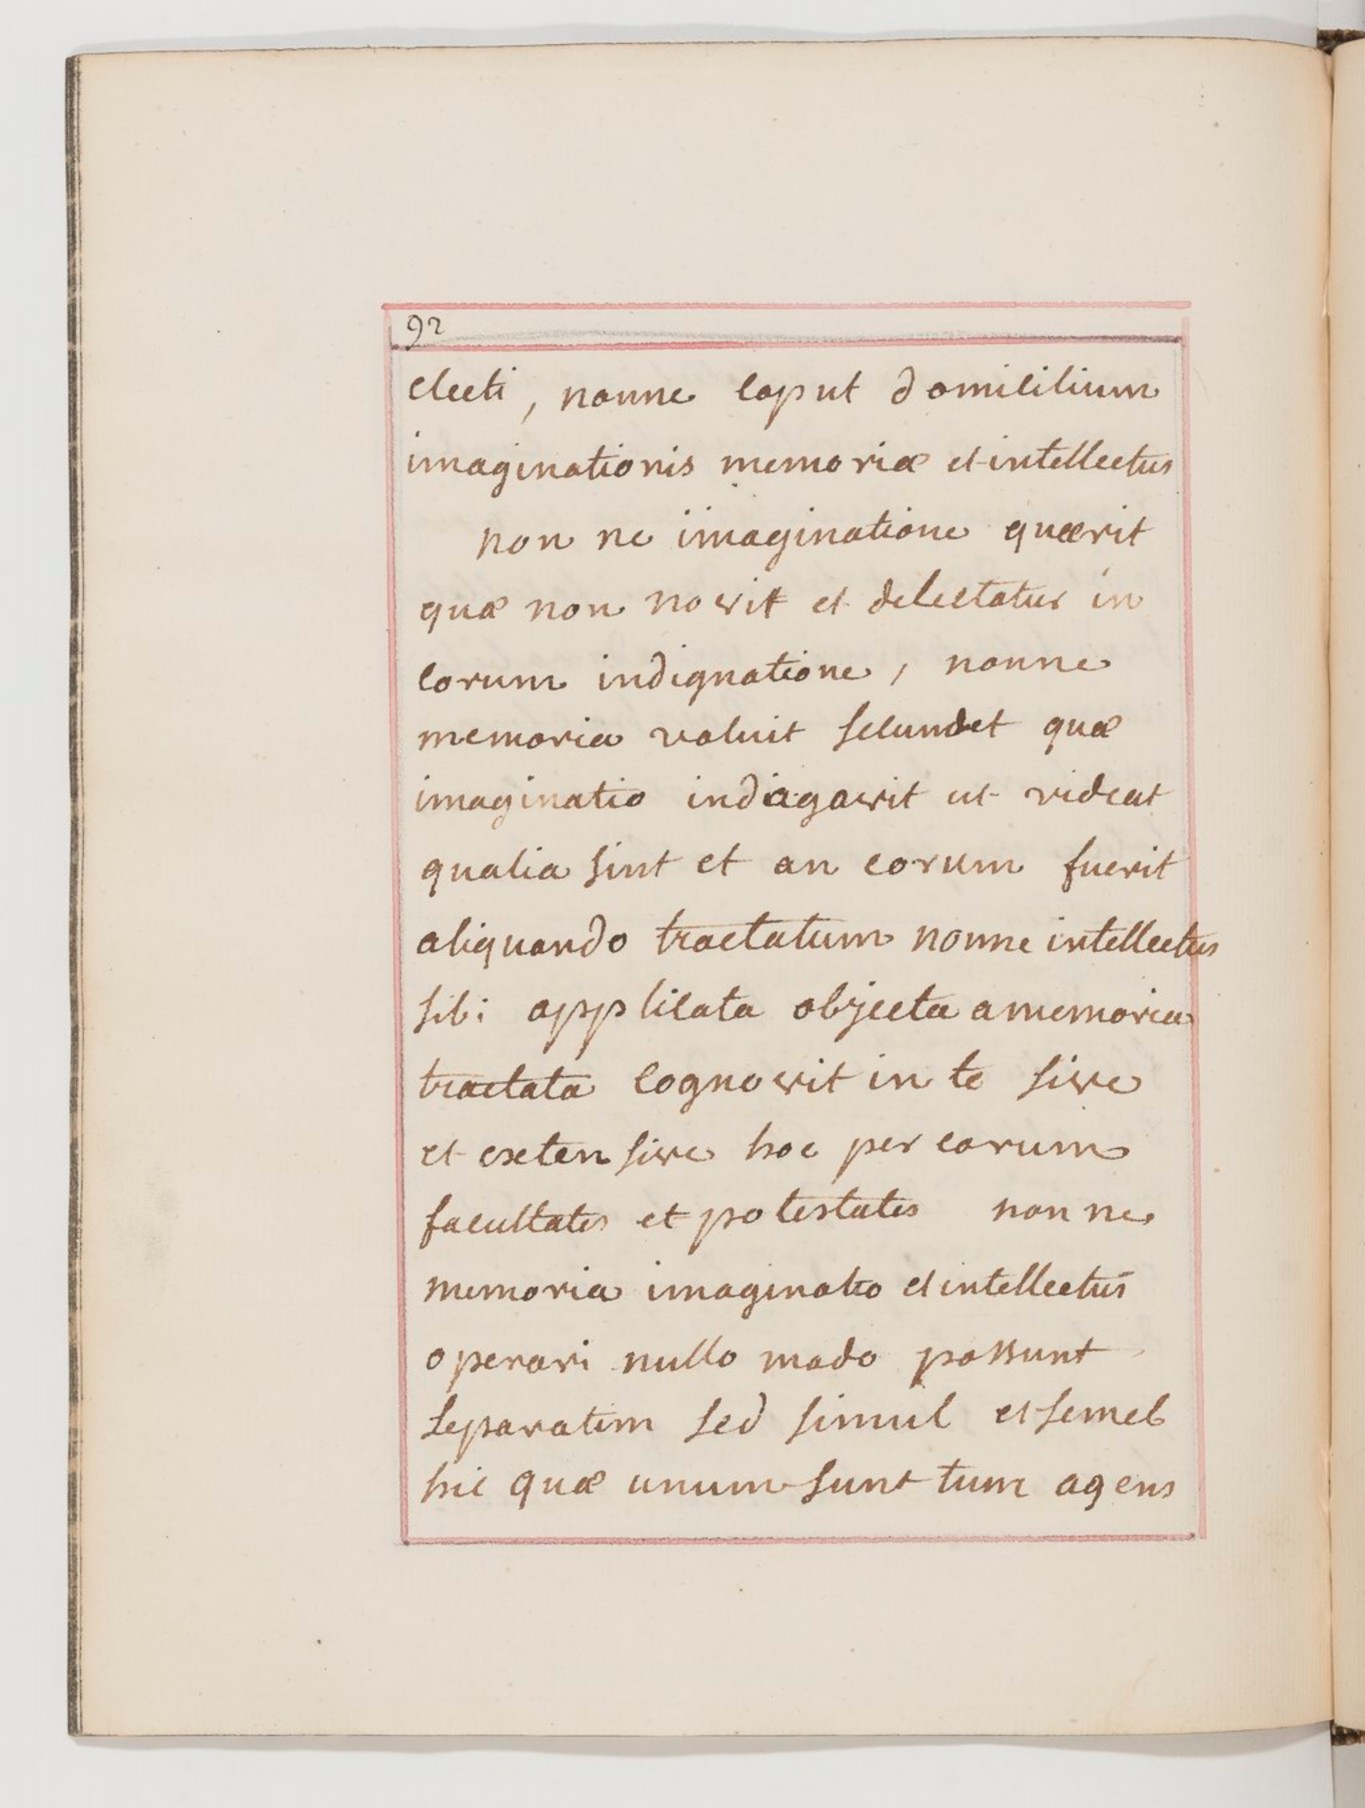 92
electi, nonne caput domicilium
imaginationis memoriæ et intellectus
non ne imaginatione quærit
quæ non novit et delectatur in
eorum indignatione, nonne
memoria voluit secundet quæ
imaginatio indagavit ut videat
qualia sint et an eorum fuerit
aliquando tractatum nonne intellectus
sibi applicata objecta a memoria
tractata cognovit in te sive
et exten sive hoc per earum
facultates et potestates non ne
memoria imaginatio et intellectus
operari nullo modo possunt
separatim sed simul et semel
hic quæ unum sunt tum agens